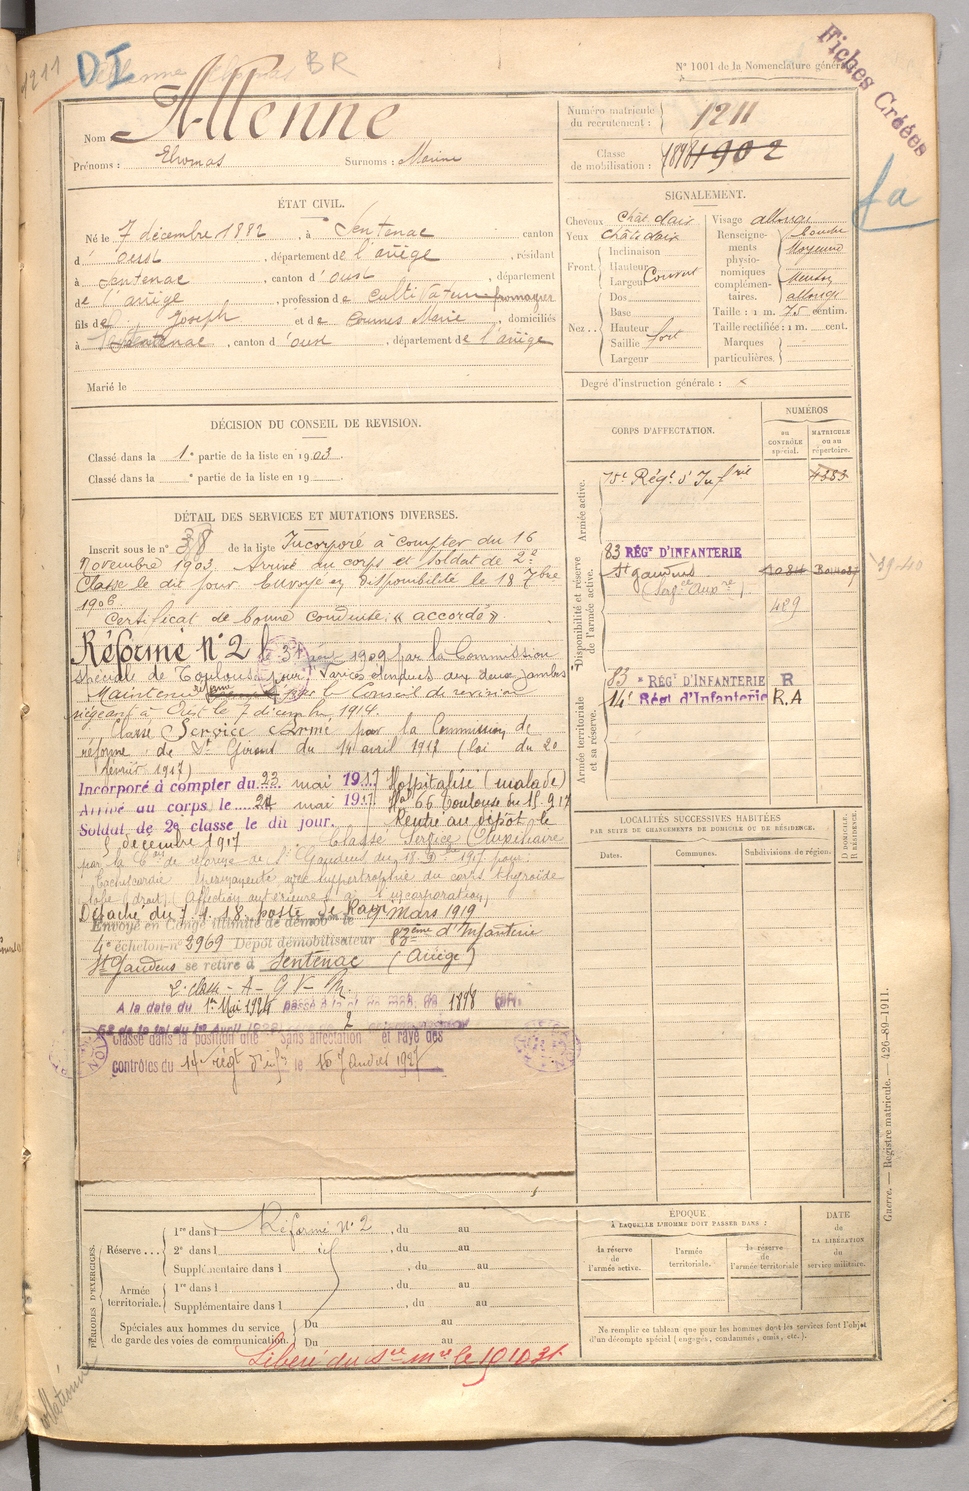 1211
DI
BR
N° 1001 de la Nomenclature génér
Fiches Créées
fa
Nom Attenne
Prénoms : Thomas Surnoms : Marius
Numéro matricule du recrutement : 1211
Classe de mobilisation : 1898 1902
ÉTAT CIVIL.
Né le 7 décembre 1882, à Sentenac, canton
d'oust, département de l'ariège, résidant
à Sentenac, canton d'oust, département
de l'ariège, profession de cultivateur fromager
fils de Joseph et de Marie, domiciliés
à Sentenac, canton d'oust, département de l'ariège
Marié le
SIGNALEMENT.
Cheveux chât. clair
Yeux chât. clair
Front
Inclinaison
Hauteur
Largeur Couvert
Nez
Dos
Base
Hauteur
Saillie fort
Largeur
Visage allongé
Renseignements physionomiques complémentaires. Bouche
Moyenne
Menton
allongé
Taille : 1 m. 75 centim.
Taille rectifiée : 1 m. cent.
Marques particulières.
Degré d'instruction générale :
DÉCISION DU CONSEIL DE REVISION.
Classé dans la 1e partie de la liste en 1903.
Classé dans la e partie de la liste en 19
DÉTAIL DES SERVICES ET MUTATIONS DIVERSES.
Inscrit sous le n° 38 de la liste Incorporé à compter du 16
Novembre 1903. Arrivé au corps et soldat de 2e
Classe le dit jour. Envoyé en disponibilité le 18 7bre
1906
Certificat de bonne conduite « accordé »
Réformé N° 2 le 31 août 1909 par la Commission
spéciale de Toulouse pour Varices aux deux jambes
Maintenu réformé par le Conseil de revision
siégeant à Oust le 7 décembre 1914.
Classé Service Armé par la Commission de
réforme de St Girons du 14 avril 1917 (loi du 20
février 1917)
Incorporé à compter du 23 mai 1917
Arrivé au corps le 24 mai 1917
Soldat de 2e classe le dit jour.
Hospitalisé (malade)
Hal 66 Toulouse du 15.9.17
Rentré au dépôt le
5 décembre 1917
Classé Service Auxiliaire
par la Con de réforme de St Gaudens du 18 Dbre 1917 pour :
Tachycardie avec hypertrophie du corps thyroïde
lobe (droit) (Affection antérieure à l'incorporation)
Détaché du 7.1.18 poste de
9 Mars 1919
Envoyé en Congé illimité de démob. le
4e échelon n° 3969 Dépôt démobilisateur 83ème d'Infanterie
St Gaudens se retire à Sentenac (Ariège)
A la date du 1er Mai 1924 passé à la cl. de mob. de 1898
52 de la loi du 1er Avril 1923)
Classé dans la position dite "sans affectation" et rayé des
contrôles du 14e régt d'infie le 15 Janvier 1927
CORPS D'AFFECTATION.
NUMÉROS
au CONTRÔLE spécial.
MATRICULE ou au répertoire.
Armée active.
Régt d'Infrie
4353
Disponibilité et réserve de l'armée active.
83 RÉGt D'INFANTERIE
St gaudens
(Serv. Auxre)
489
39-40
83e RÉGt D'INFANTERIE R
Armée territoriale et sa réserve.
14e Régt d'Infanterie R.A
LOCALITÉS SUCCESSIVES HABITÉES
PAR SUITE DE CHANGEMENTS DE DOMICILE OU DE RÉSIDENCE.
Dates.
Communes.
Subdivisions de région.
D DOMICILE.
R RÉSIDENCE.
PÉRIODES D'EXERCICES.
Réserve...
1re dans l Réformé N° 2, du au
2e dans l id, du au
Supplémentaire dans l, du au
Armée territoriale.
1re dans l, du au
Supplémentaire dans l, du au
Spéciales aux hommes du service de garde des voies de communication.
Du au
Du au
ÉPOQUE
À LAQUELLE L'HOMME DOIT PASSER DANS :
la réserve de l'armée active.
l'armée territoriale.
la réserve de l'armée territoriale
DATE de LA LIBÉRATION du service militaire.
Ne remplir ce tableau que pour les hommes dont les services font l'objet
d'un décompte spécial (engagés, condamnés, omis, etc.).
Libéré du sce mre le
Guerre. — Registre matricule. — 426-89-1911.